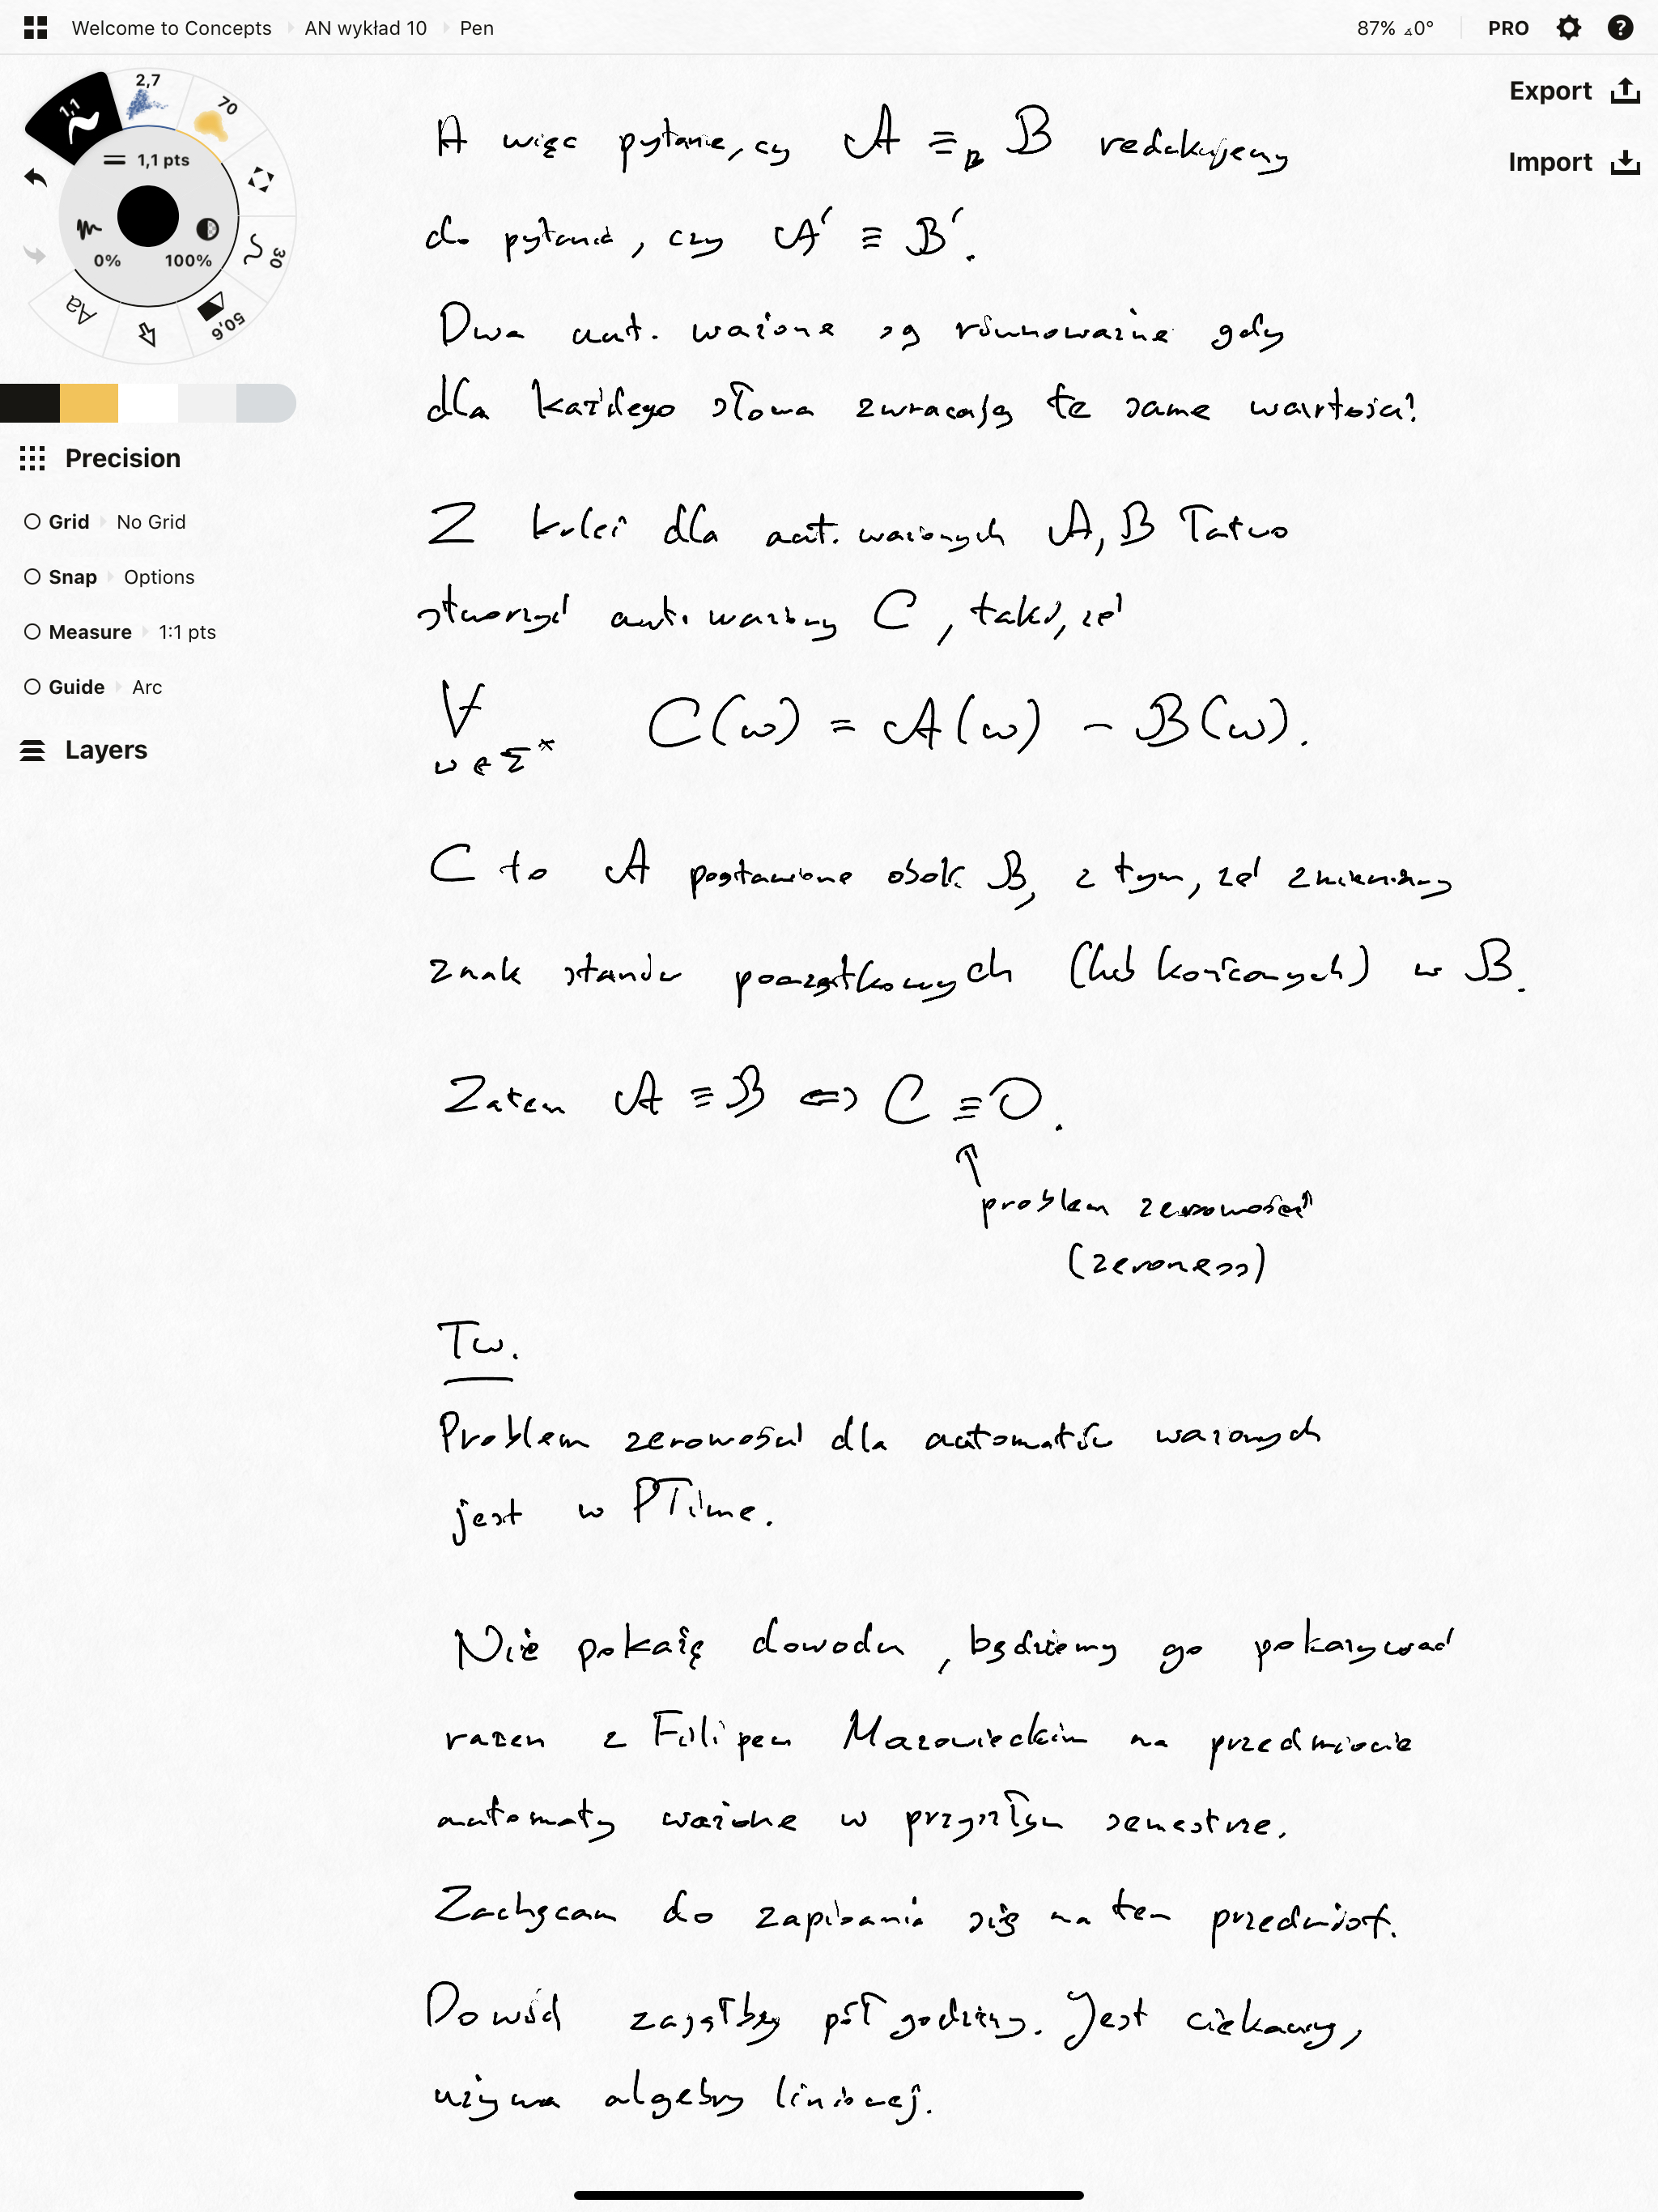 Welcome to Concepts AN wykład 10 Pen 87% ⊿0° PRO
Export
Import
2,7
70
1,1
1,1 pts
0% 100%
30
50,6
Aa
Precision
Grid No Grid
Snap Options
Measure 1:1 pts
Guide Arc
Layers
A więc pytanie, czy A ≡ₚ B redukujemy
do pytania, czy A' ≡ B'.
Dwa aut. ważone są równoważne gdy
dla każdego słowa zwracają te same wartości!
Z kolei dla aut. ważonych A, B łatwo
stworzyć aut. ważony C, taki, że
∀ C(w) = A(w) - B(w).
w ∈ Σ*
C to A postawione obok B, z tym, że zmieniamy
znak stanów początkowych (lub końcowych) w B.
Zatem A ≡ B ⇔ C ≡ 0.
↑
problem zerowości
(zeroness)
Tw.
Problem zerowości dla automatów ważonych
jest w PTime.
Nie pokażę dowodu, będziemy go pokazywać
razem z Filipem Mazowieckim na przedmiocie
automaty ważone w przyszłym semestrze.
Zachęcam do zapisania się na ten przedmiot.
Dowód zająłby pół godziny. Jest ciekawy,
używa algebry liniowej.